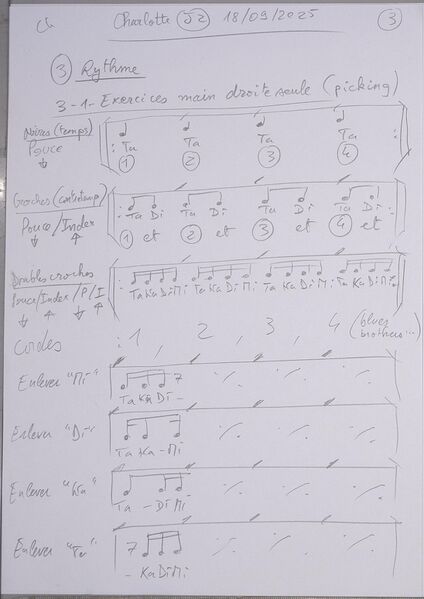 Ch Charlotte J2 18/09/2025 3
3 Rythme
3-1- Exercices main droite seule (picking)
Noires (temps)
Pouce
Ta Ta Ta Ta
1 2 3 4
Croches (contretemps)
Pouce/Index
Ta Di Ta Di Ta Di Ta Di
1 et 2 et 3 et 4 et
Doubles croches
Pouce/Index/P/I
Ta Ka Di Mi Ta Ka Di Mi Ta Ka Di Mi Ta Ka Di Mi
Cordes : 1, 2, 3, 4 (blues brothers...)
Enlever "Mi"
Ta Ka Di -
Enlever "Di"
Ta Ka - Mi
Enlever "Ka"
Ta - Di Mi
Enlever "Ta"
- Ka Di Mi